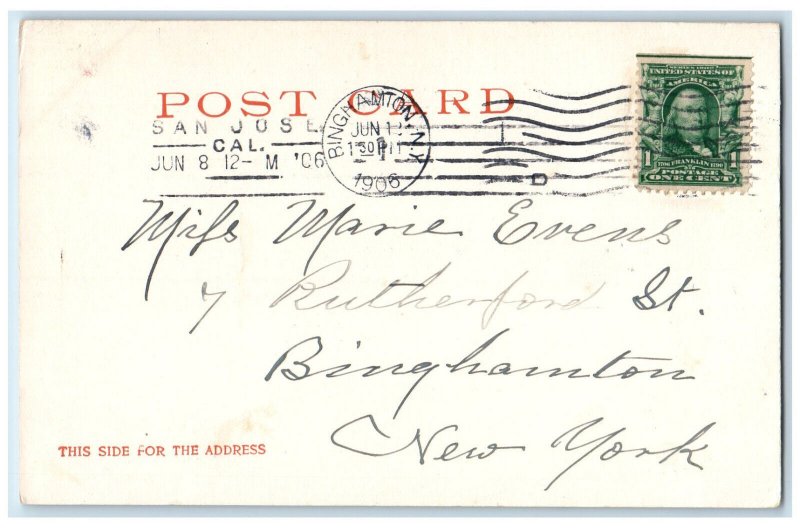 POST CARD
SAN JOSE
CAL.
JUN 8 12-M '06
BINGHAMTON, N.Y.
JUN 12
1 30 PM
1906
D
SERIES 1902
UNITED STATES OF
AMERICA
1 1706 FRANKLIN 1790 1
POSTAGE
ONE CENT
Miss Marie Evens
7 Rutherford St.
Binghamton
New York
THIS SIDE FOR THE ADDRESS